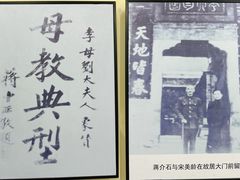 李母劉太夫人家付
母教典型
蔣中正敬題
天地皆春
蒋介石与宋美龄在故居大门前留